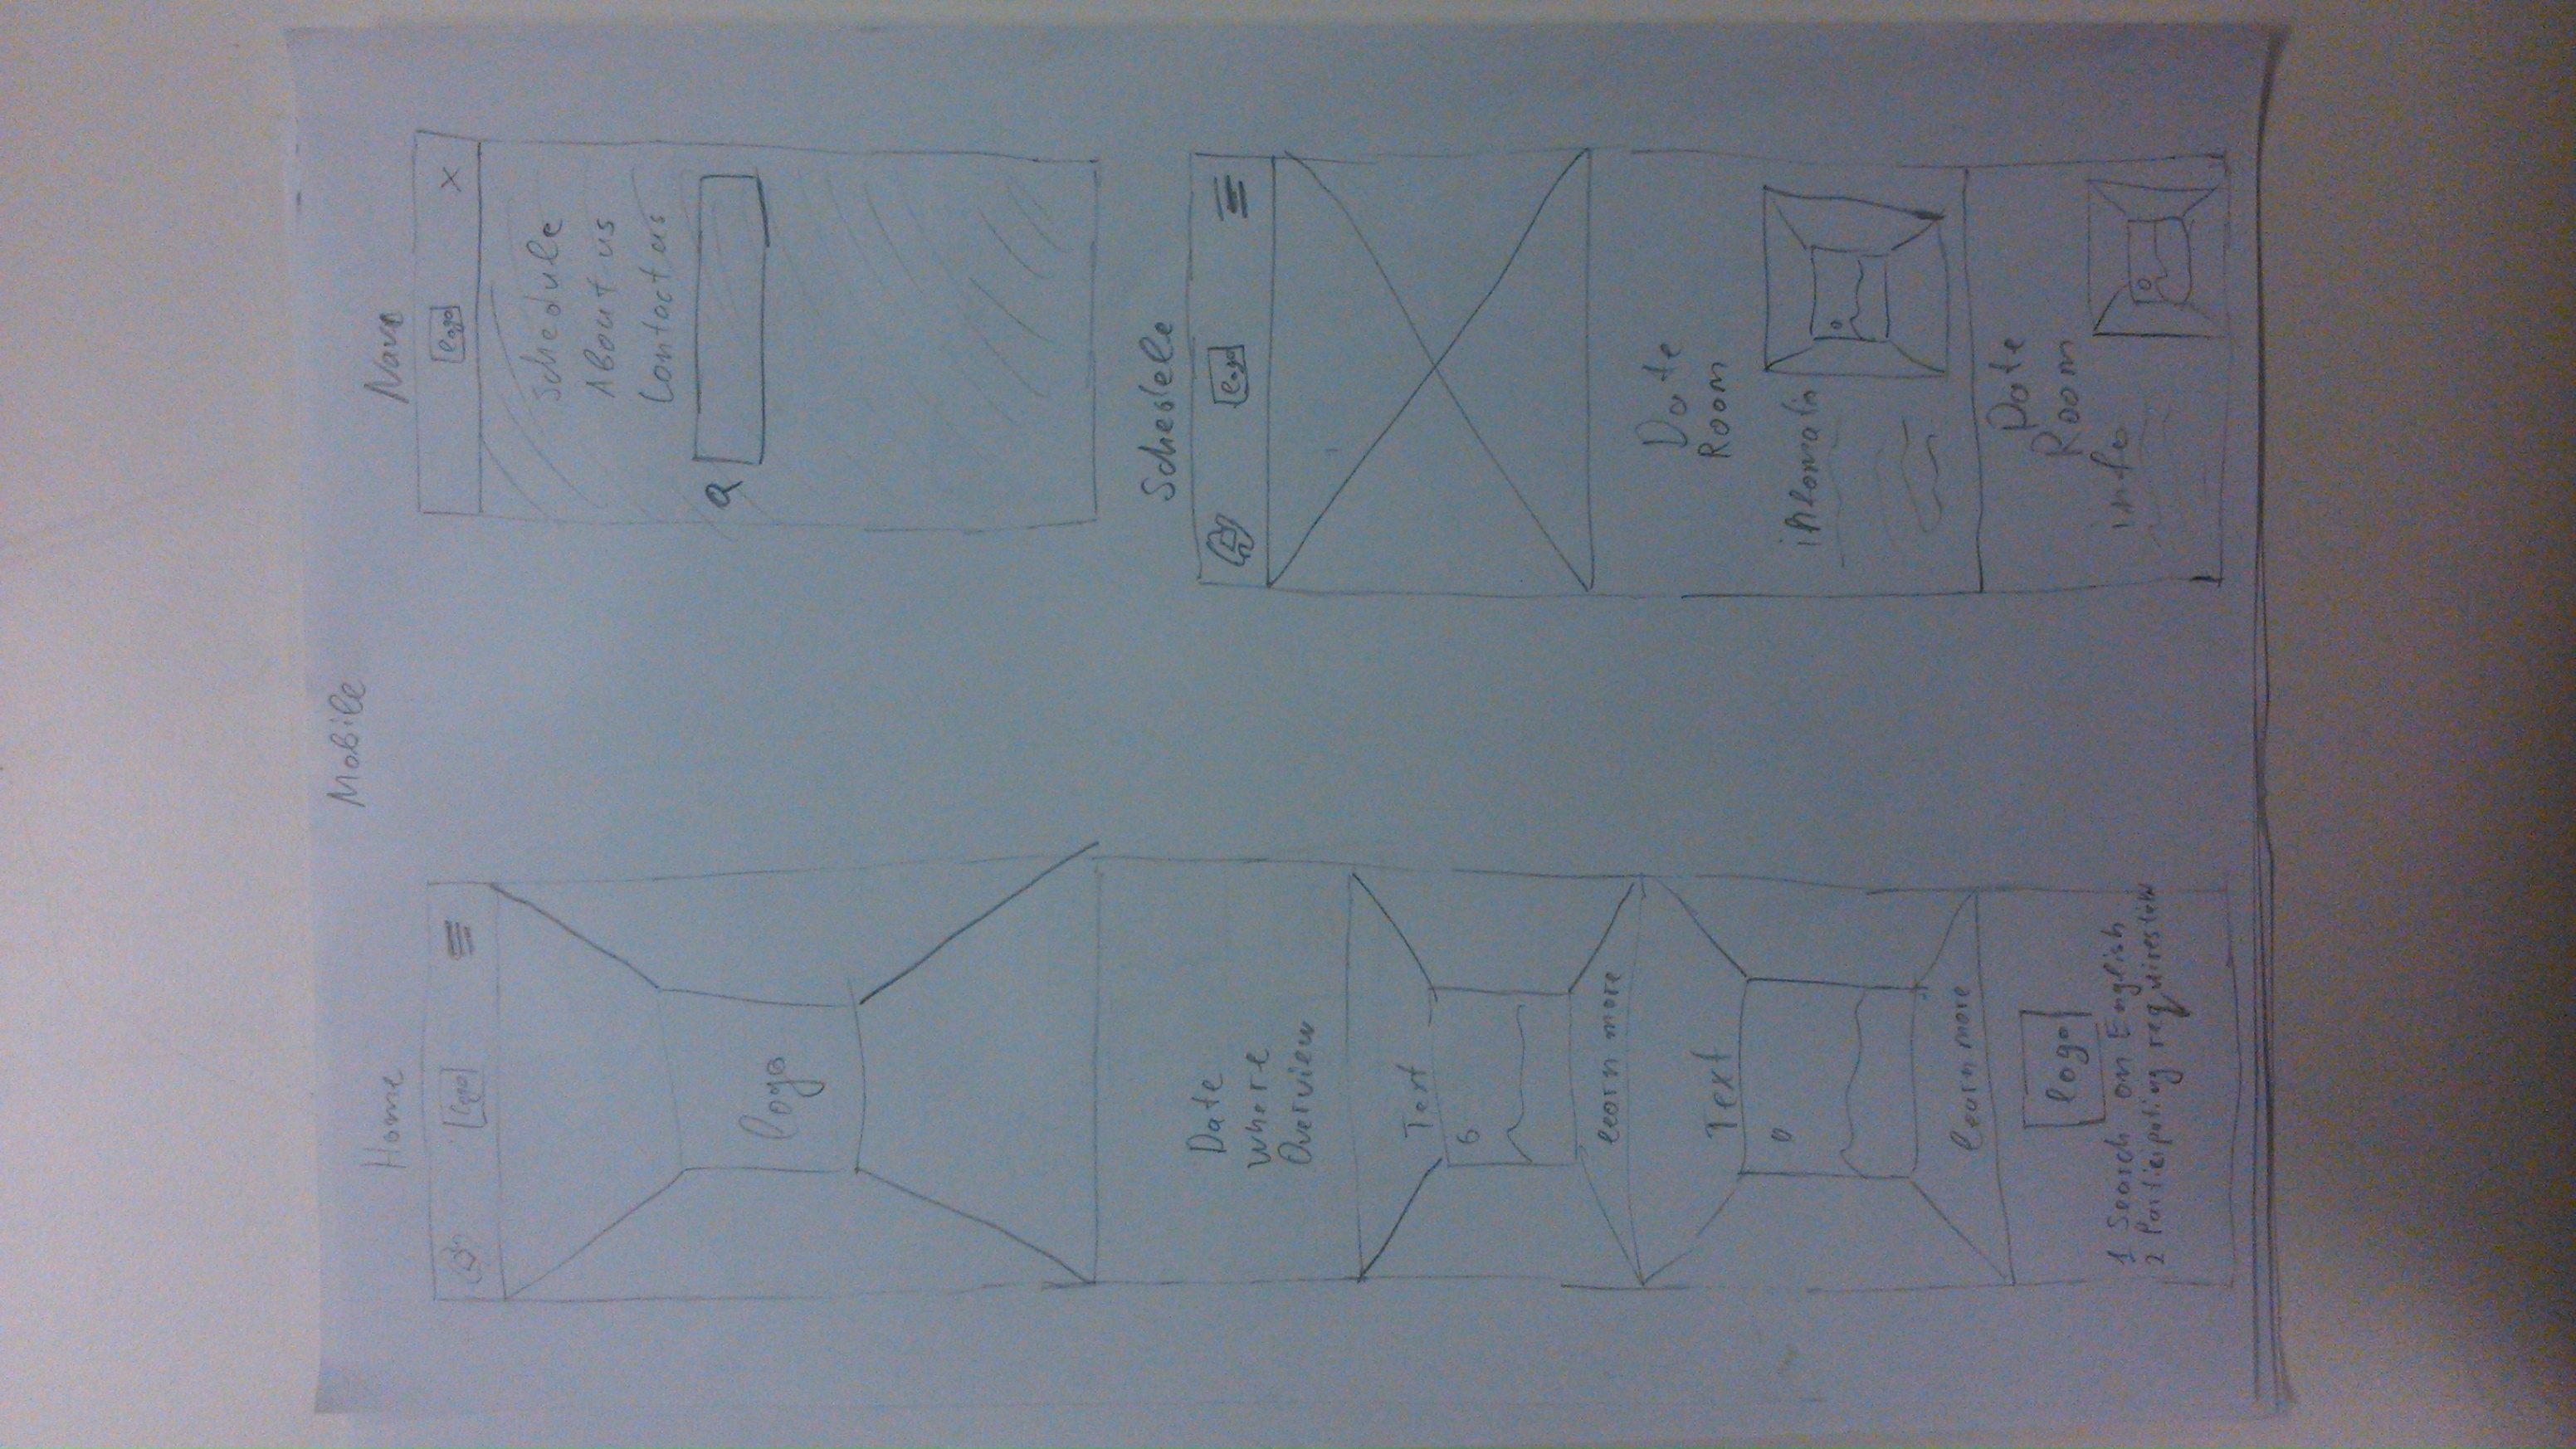 Mobile
Home
logo
logo
Date
Where
Overview
Text
learn more
Text
learn more
logo
1 Search on English
2 Participating
Nav
logo
X
Schedule
About us
Contact us
logo
Date
Room
Date
Room
info